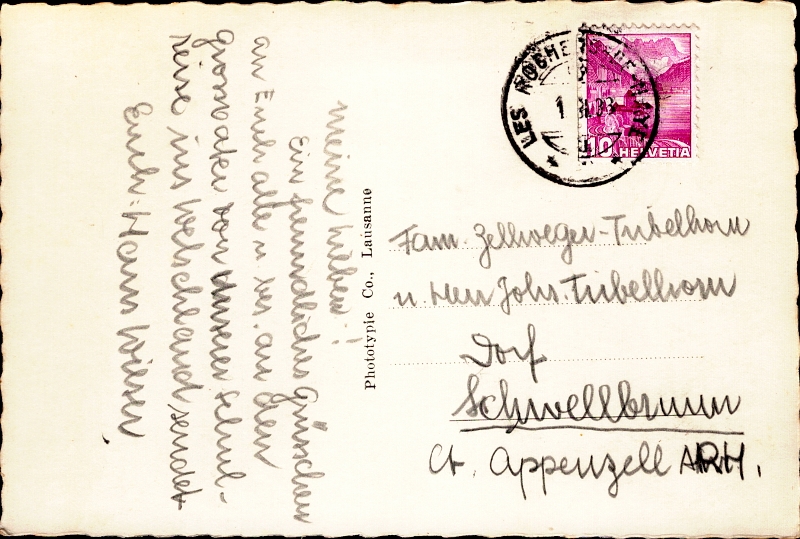 meine Lieben!
Ein freundliches Grüsschen
an Euch alle u. bes. an den
Grossvater von unserer Schul-
reise ins Welschland sendet
Euch: Hann
Phototypie Co., Lausanne
LES ROCHERS DE NAYE
10 HELVETIA
Fam. Zellweger-Tribelhorn
u. Herr Johs. Tribelhorn
Dorf
Schwellbrunn
Ct. Appenzell ARH.